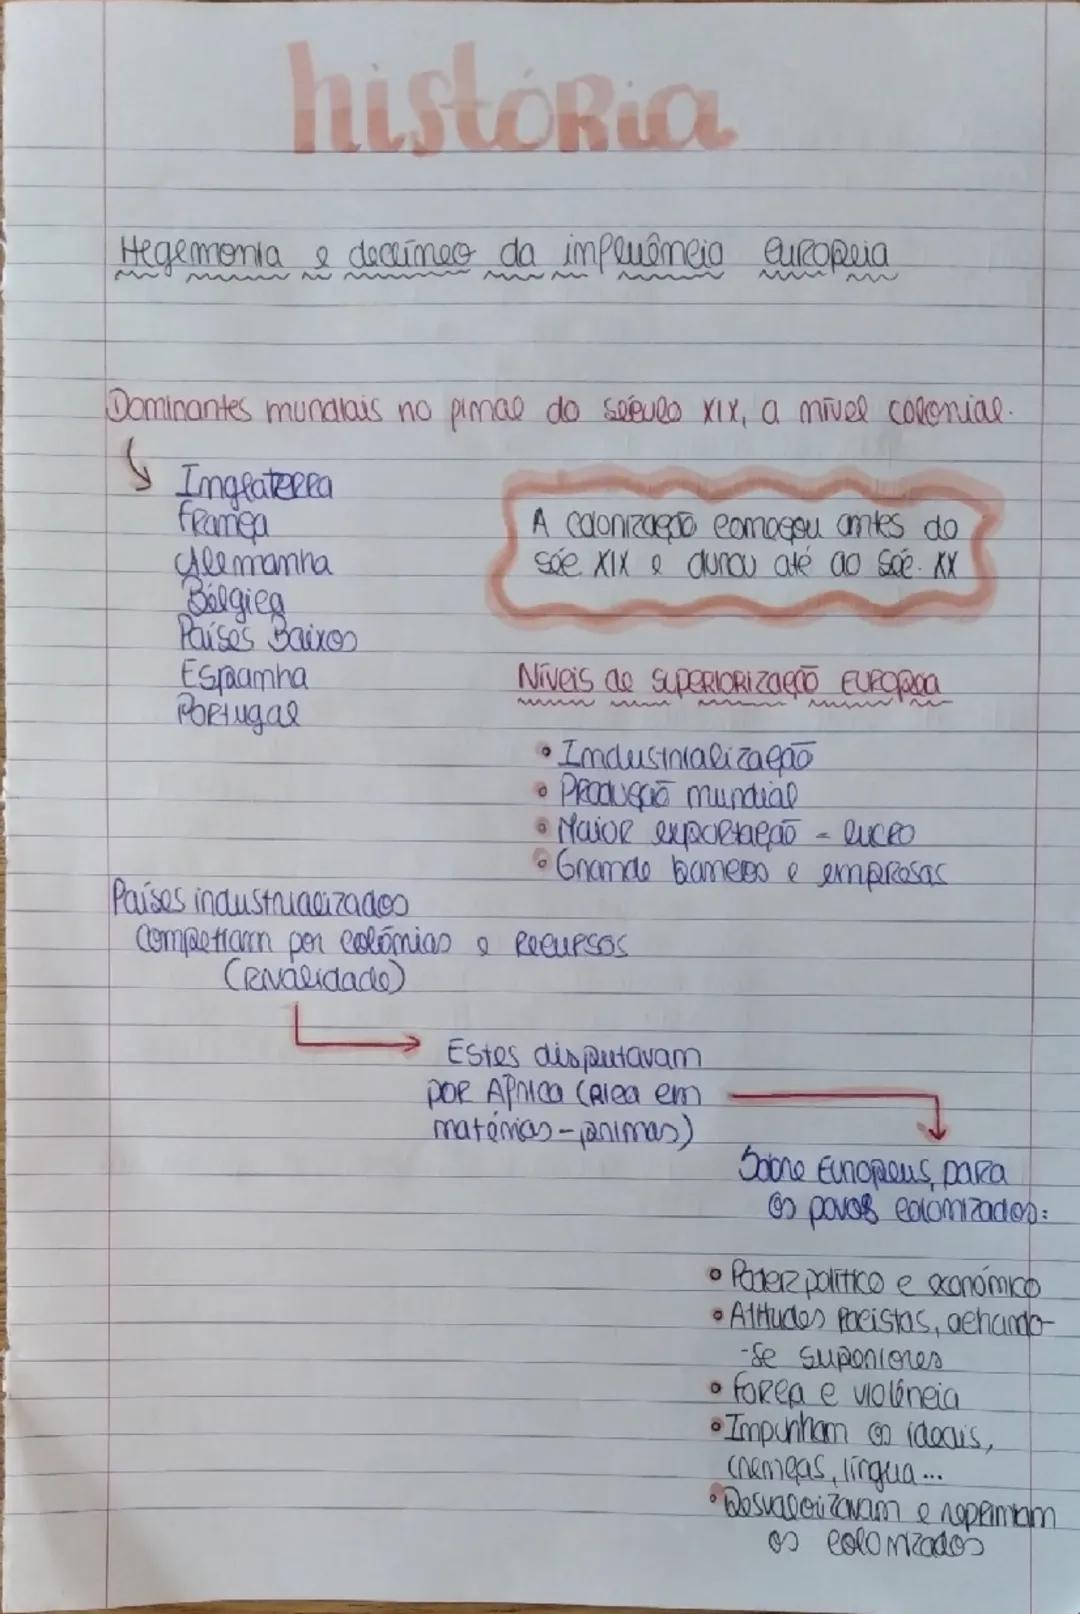 história
Hegemonia e declíneo da influência europeia
Dominantes mundiais no final do século XIX, a nível colonial.
Inglaterra
França
Alemanha
Bélgica
Países Baixos
Espanha
Portugal
A colonização começou antes do
séc XIX e durou até ao séc. XX
Níveis de superiorização europea
• Industrialização
• Produção mundial
• Maior exportação - lucro
• Grande bancos e empresas
Países industrializados
competiam por colónias e recursos
(rivalidade)
Estes disputavam
por África (rica em
matérias-primas)
Sobre Europeus, para
os povos colonizados:
• Poder político e económico
• Atitudes racistas, achando-
-se superiores
• força e violência
• Impunham os ideais,
crenças, língua...
• Desvalorizavam e reprimiam
os colonizados